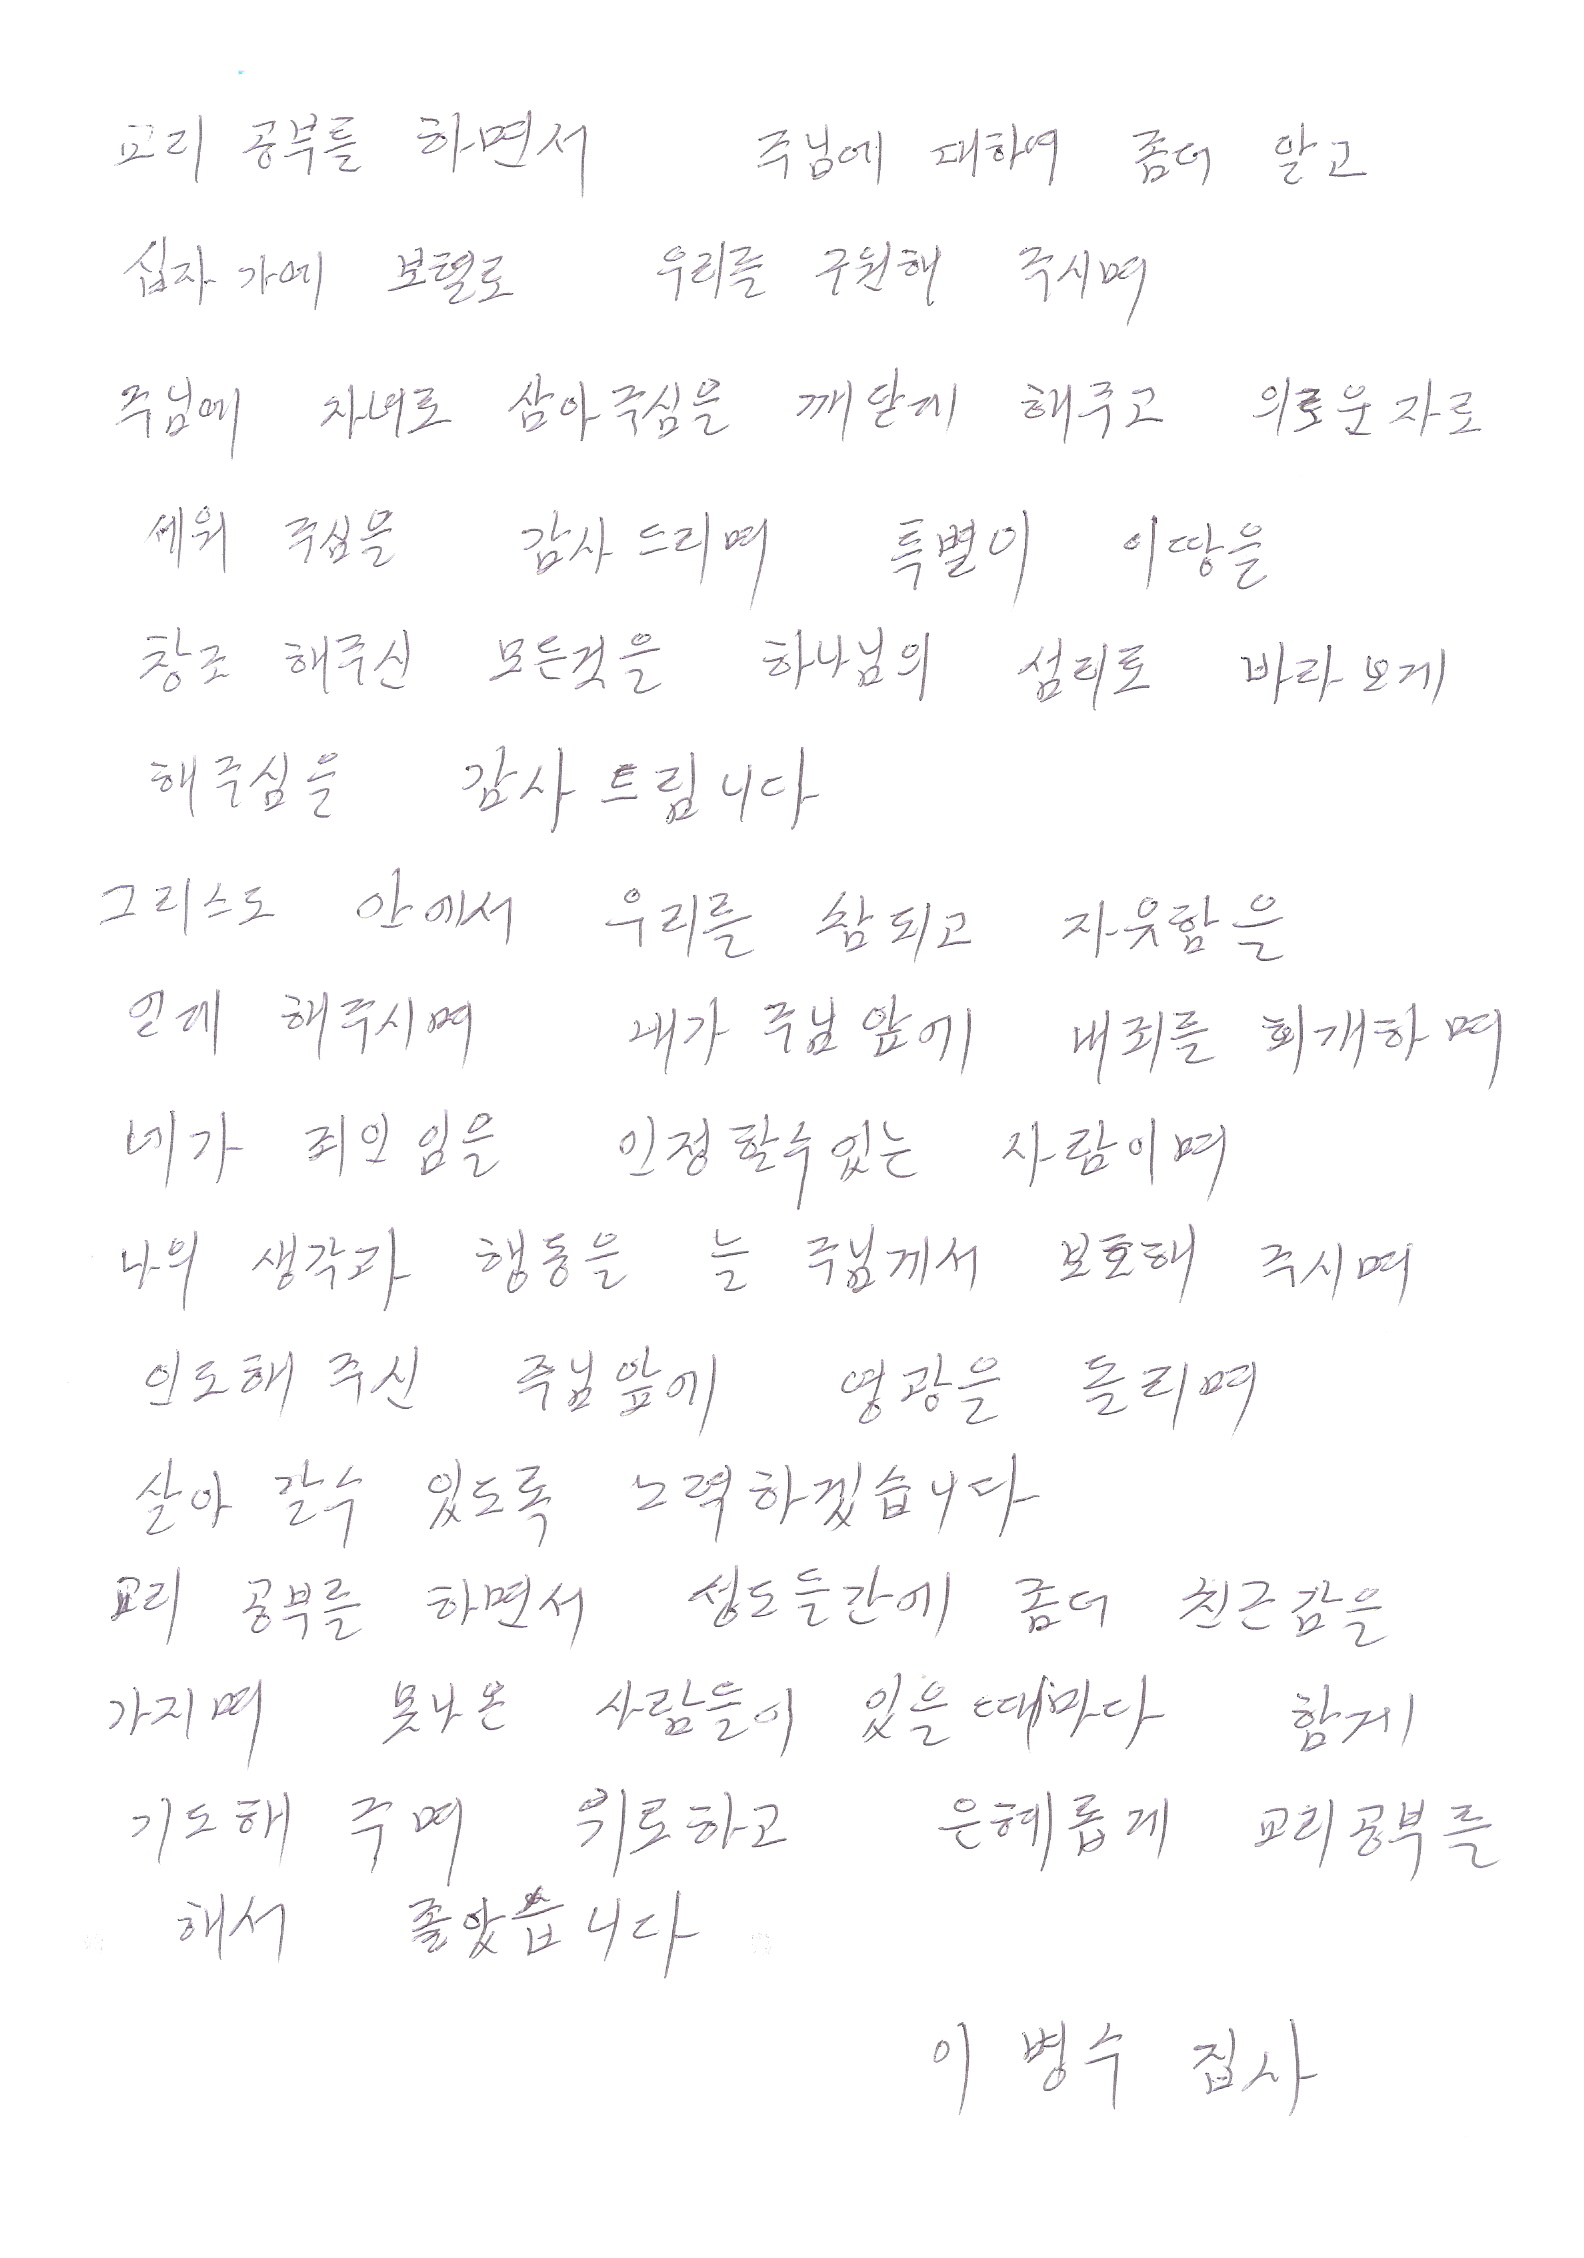 교리 공부를 하면서 주님에 대하여 좀더 알고
십자가에 보혈로 우리를 구원해 주시며
주님에 자녀로 삼아주심을 깨닫게 해주고 의로운자로
세워 주심을 감사드리며 특별이 이땅을
창조 해주신 모든것을 하나님의 섭리로 바라보게
해주심을 감사드립니다
그리스도 안에서 우리를 참되고 자유함을
얻게 해주시며 내가 주님앞에 내죄를 회개하며
네가 죄인임을 인정할수있는 사람이며
나의 생각과 행동을 늘 주님께서 보호해 주시며
인도해 주신 주님앞에 영광을 돌리며
살아 갈수 있도록 노력하겠습니다
교리 공부를 하면서 성도들간에 좀더 친근감을
가지며 못나온 사람들이 있을때마다 함게
기도해 주며 위로하고 은혜롭게 교리공부를
해서 좋았습니다
이병수 집사